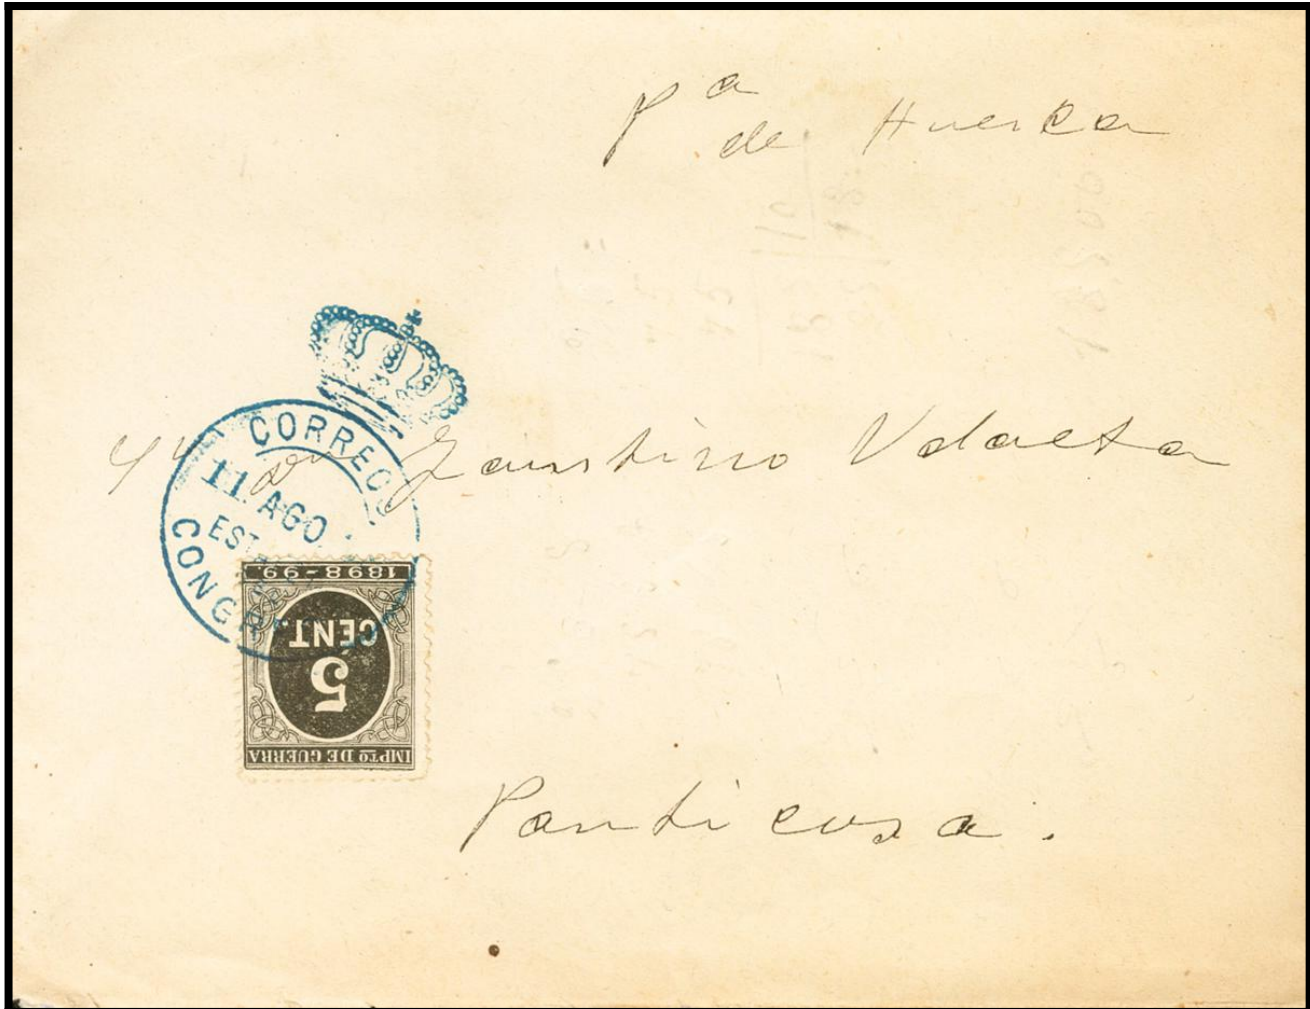 Pª de Huesca
CORREOS
11 AGO
EST
CONG
Sr Dn Faustino Udaeta
1898-99.
5
CENT.
IMPTO DE GUERRA
Panticosa.